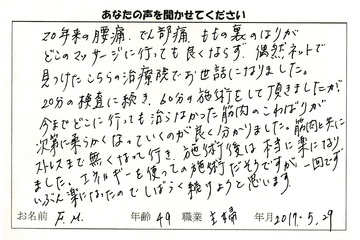 あなたの声を聞かせてください
20年来の腰痛、でん部痛、ももの裏のはりが
どこのマッサージに行っても良くならず、偶然ネットで
見つけたこちらの治療院でお世話になりました。
20分の検査に続き、60分の施術をして頂きましたが
今までどこに行っても治らなかった筋肉のこわばりが
次第に柔らかくなっていくのが良く分かりました。筋肉と共に
ストレスまで無くなって行き、施術後は本当に楽になり
ました。エネルギーを使っての施術だそうですが、一回でず
いぶん楽になったのでしばらく続けようと思います。
お名前 F.M. 年齢 49 職業 主婦 年月 2017.5.29